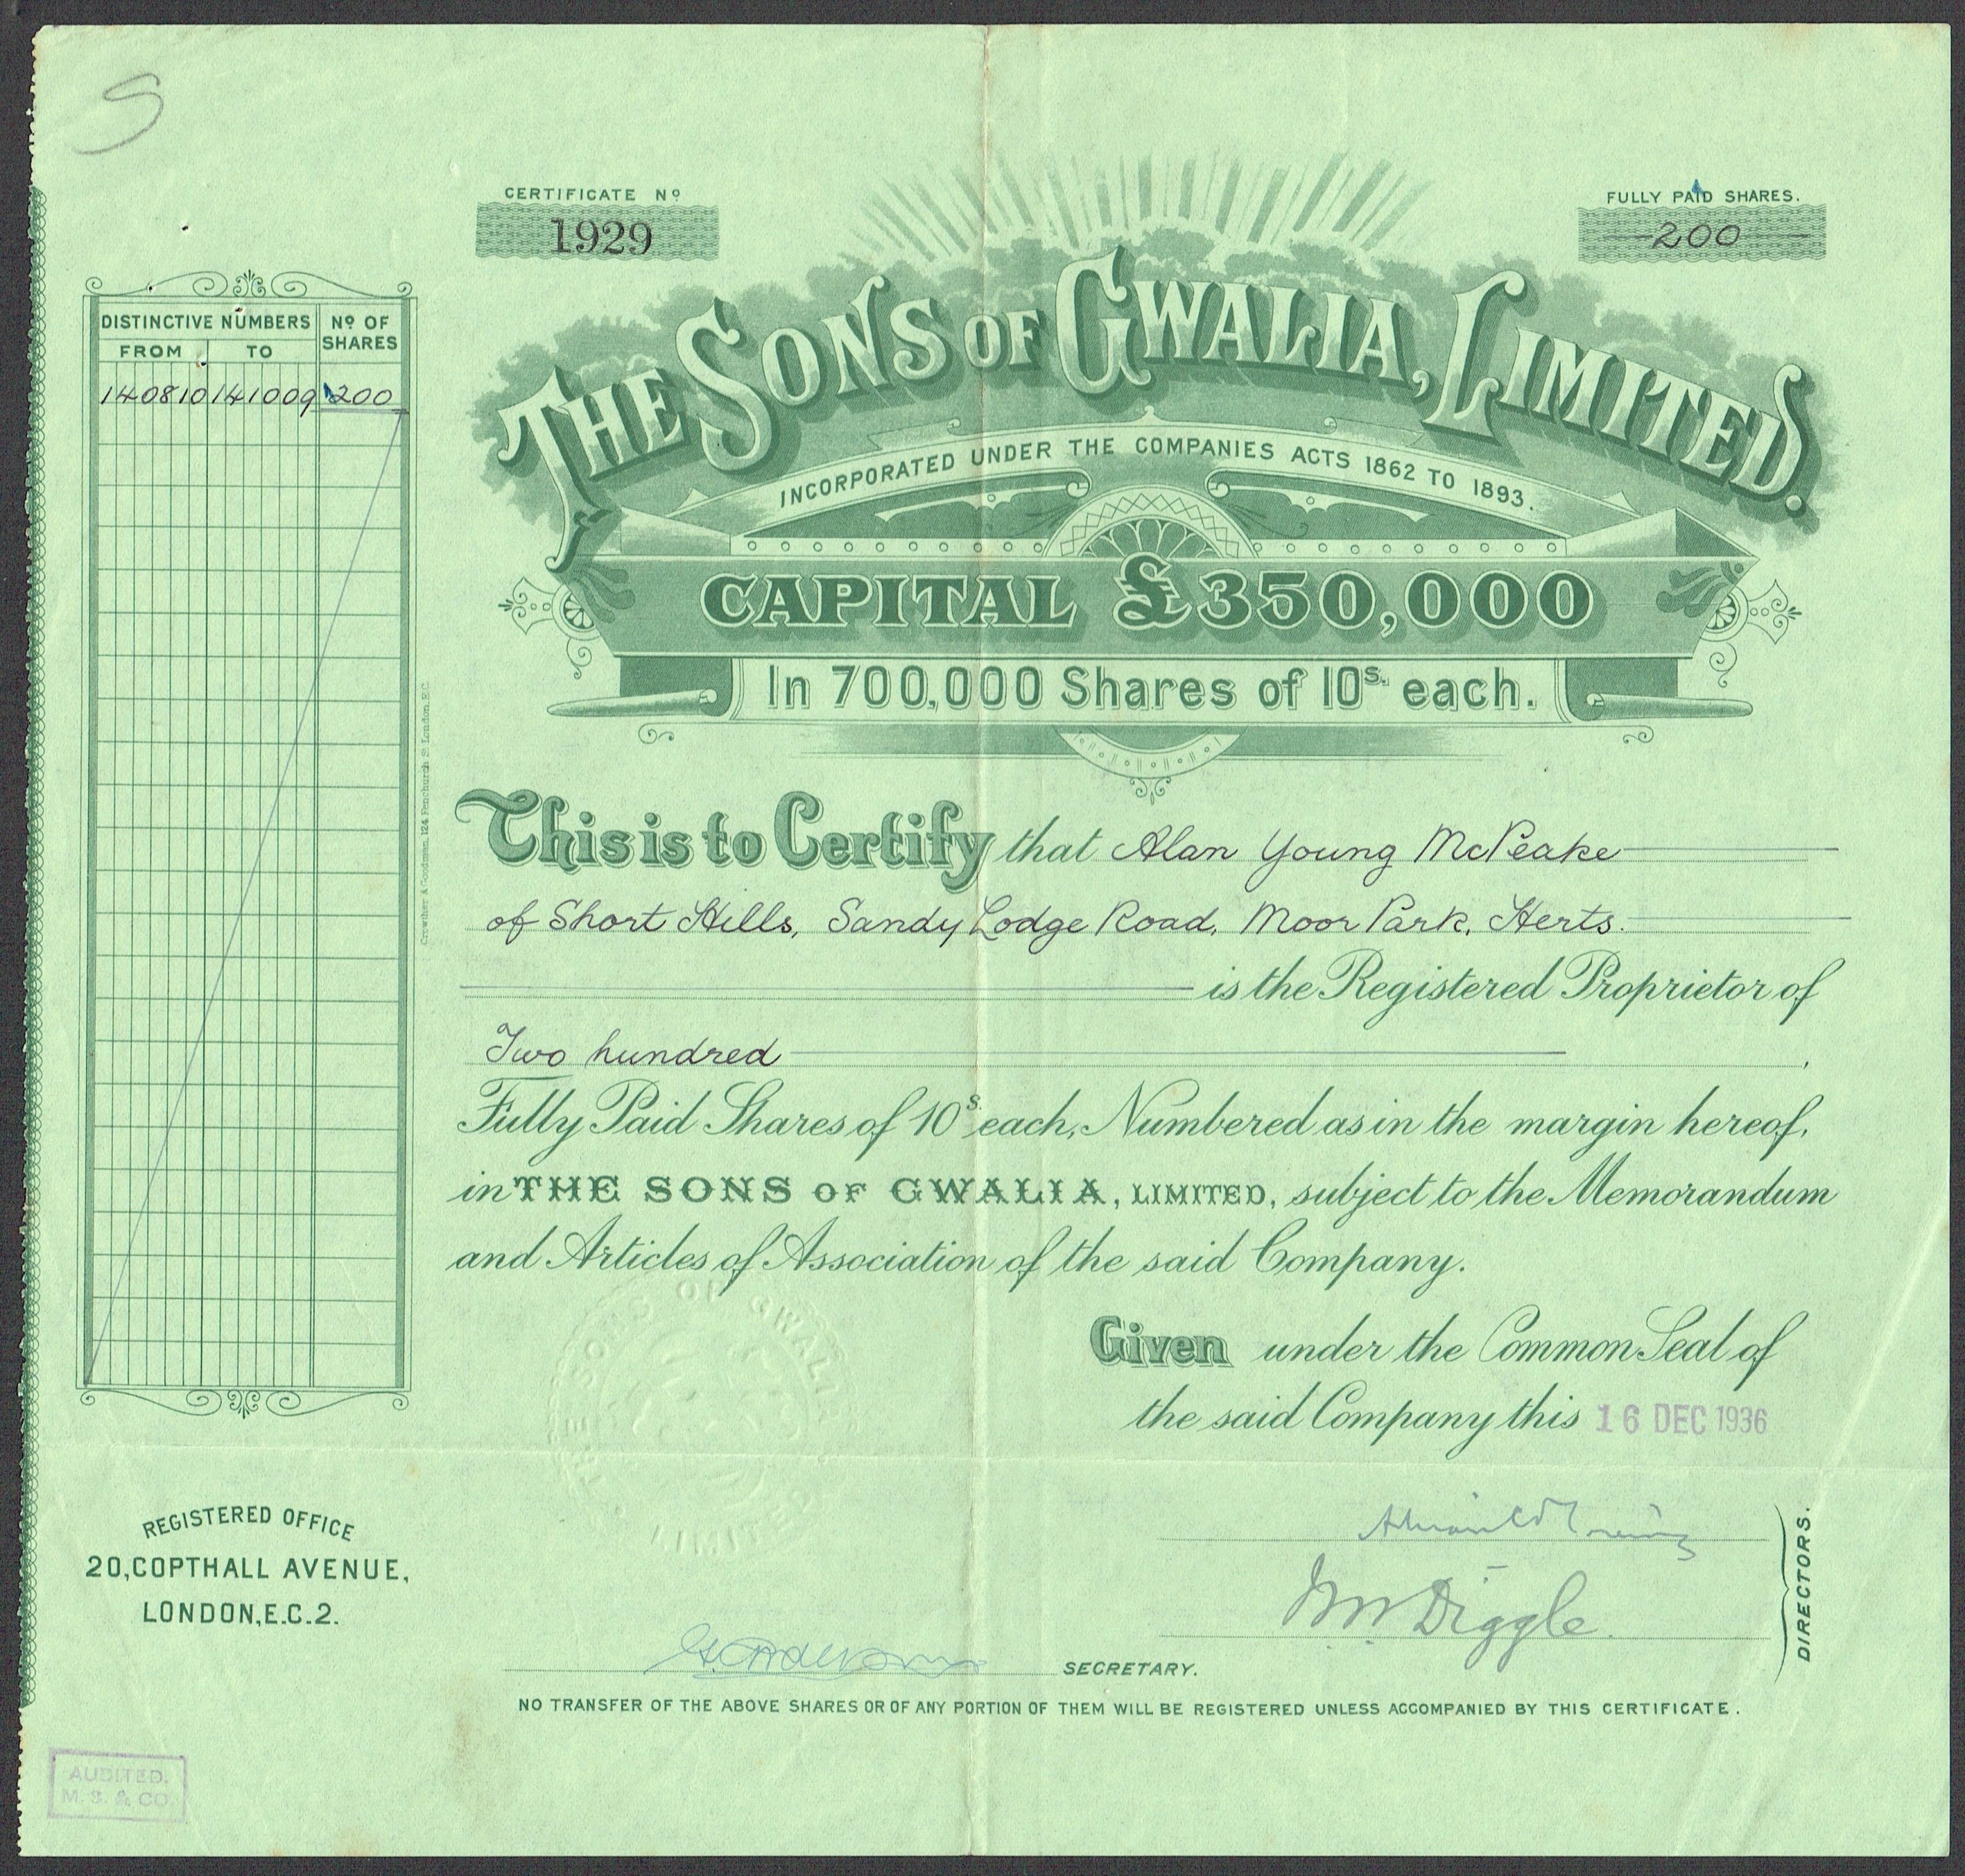 S
CERTIFICATE Nº
1929
FULLY PAID SHARES.
200
THE SONS OF GWALIA, LIMITED.
INCORPORATED UNDER THE COMPANIES ACTS 1862 TO 1893.
CAPITAL £350,000
In 700,000 Shares of 10s. each.
DISTINCTIVE NUMBERS Nº OF SHARES
FROM TO
140810 141009 200
Crowther & Goodman, 124 Fenchurch St London, E.C.
This is to Certify that Alan Young McPeake
of Short Hills, Sandy Lodge Road, Moor Park, Herts.
is the Registered Proprietor of
Two hundred
Fully Paid Shares of 10s. each, Numbered as in the margin hereof,
in THE SONS OF GWALIA, LIMITED, subject to the Memorandum
and Articles of Association of the said Company.
THE SONS OF GWALIA LIMITED
Given under the Common Seal of
the said Company this 16 DEC 1936
Diggle.
DIRECTORS.
SECRETARY.
REGISTERED OFFICE
20, COPTHALL AVENUE,
LONDON, E.C.2.
NO TRANSFER OF THE ABOVE SHARES OR OF ANY PORTION OF THEM WILL BE REGISTERED UNLESS ACCOMPANIED BY THIS CERTIFICATE.
AUDITED.
M. S. & CO.